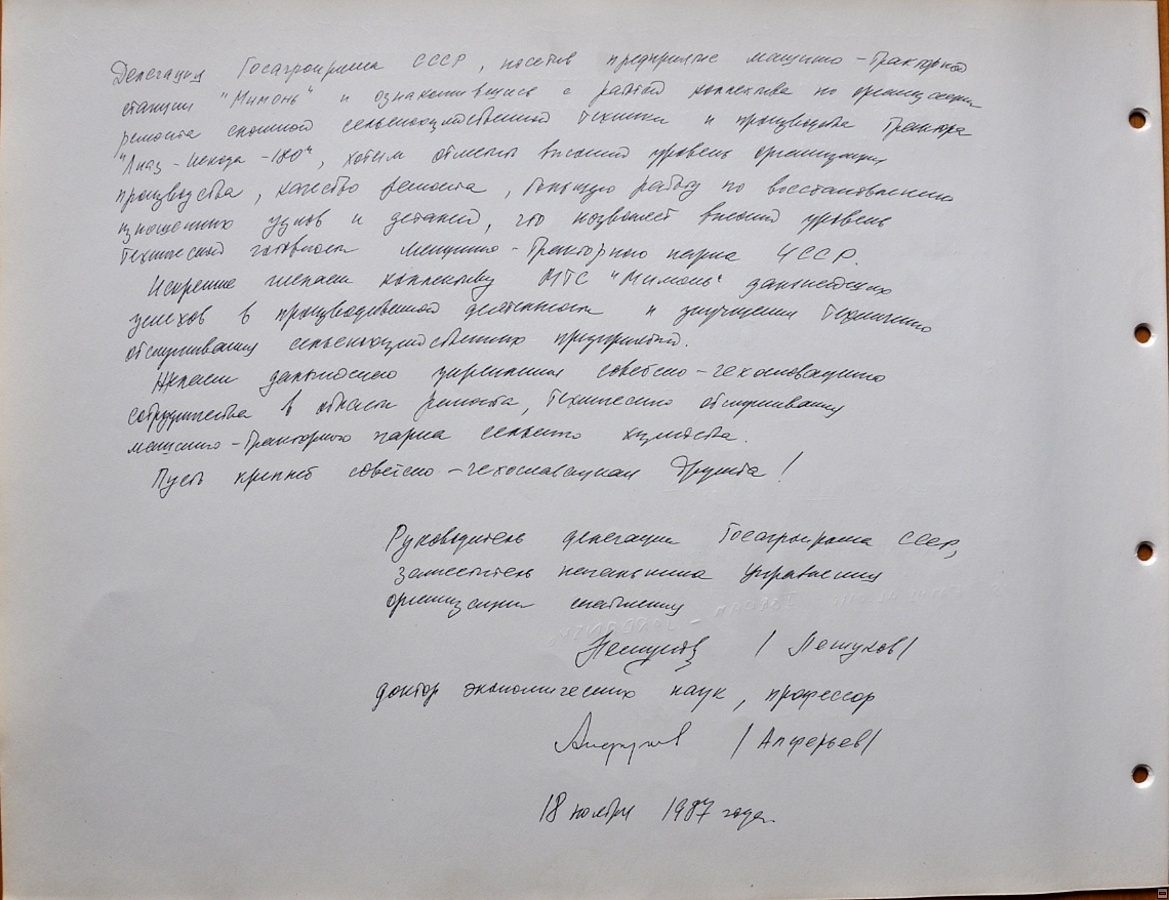 Делегация Госагропрома СССР, посетив предприятие машинно-тракторной
станции "Мимонь" и ознакомившись с работой коллектива по организации
ремонта сложной сельскохозяйственной техники и производства трактора
"Лиаз-Шкода-180", хотели отметить высокий уровень организации
производства, качество ремонта, большую работу по восстановлению
изношенных узлов и деталей, что позволяет высокий уровень
технической готовности машинно-тракторного парка ЧССР.
Искренне желаем коллективу МТС "Мимонь" дальнейших
успехов в производственной деятельности и улучшении технического
обслуживания сельскохозяйственных предприятий.
Желаем дальнейшего укрепления советско-чехословацкого
сотрудничества в области ремонта, технического обслуживания
машинно-тракторного парка сельского хозяйства.
Пусть крепнет советско-чехословацкая дружба!
Руководитель делегации Госагропрома СССР,
заместитель начальника управления
организации снабжения
/Петухов/
доктор экономических наук, профессор
/Алферьев/
18 ноября 1987 года.